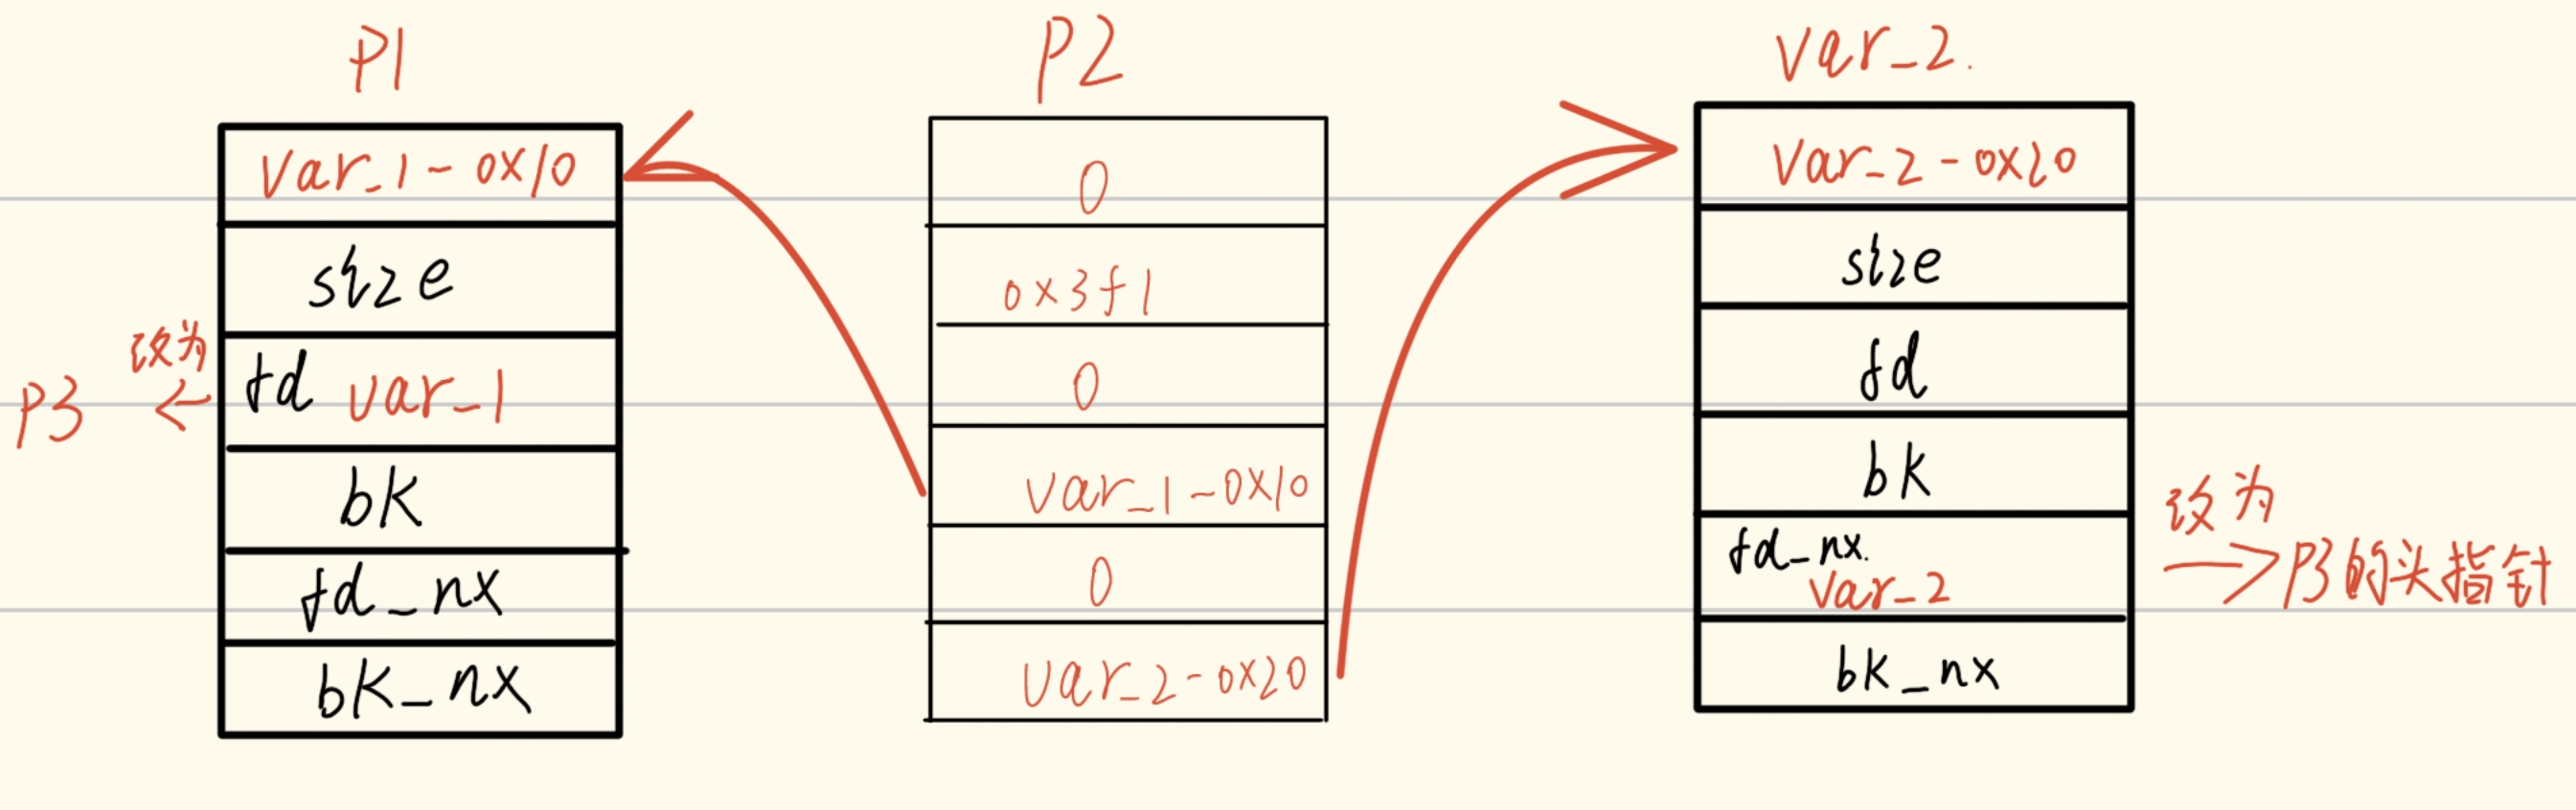 P1
var_1-0x10
size
fd var_1
改为
P3
bk
fd_nx
bk_nx
P2
0
0x3f1
0
var_1-0x10
0
var_2-0x20
var_2.
var_2-0x20
size
fd
bk
fd_nx.
var_2
改为
P3的头指针
bk_nx